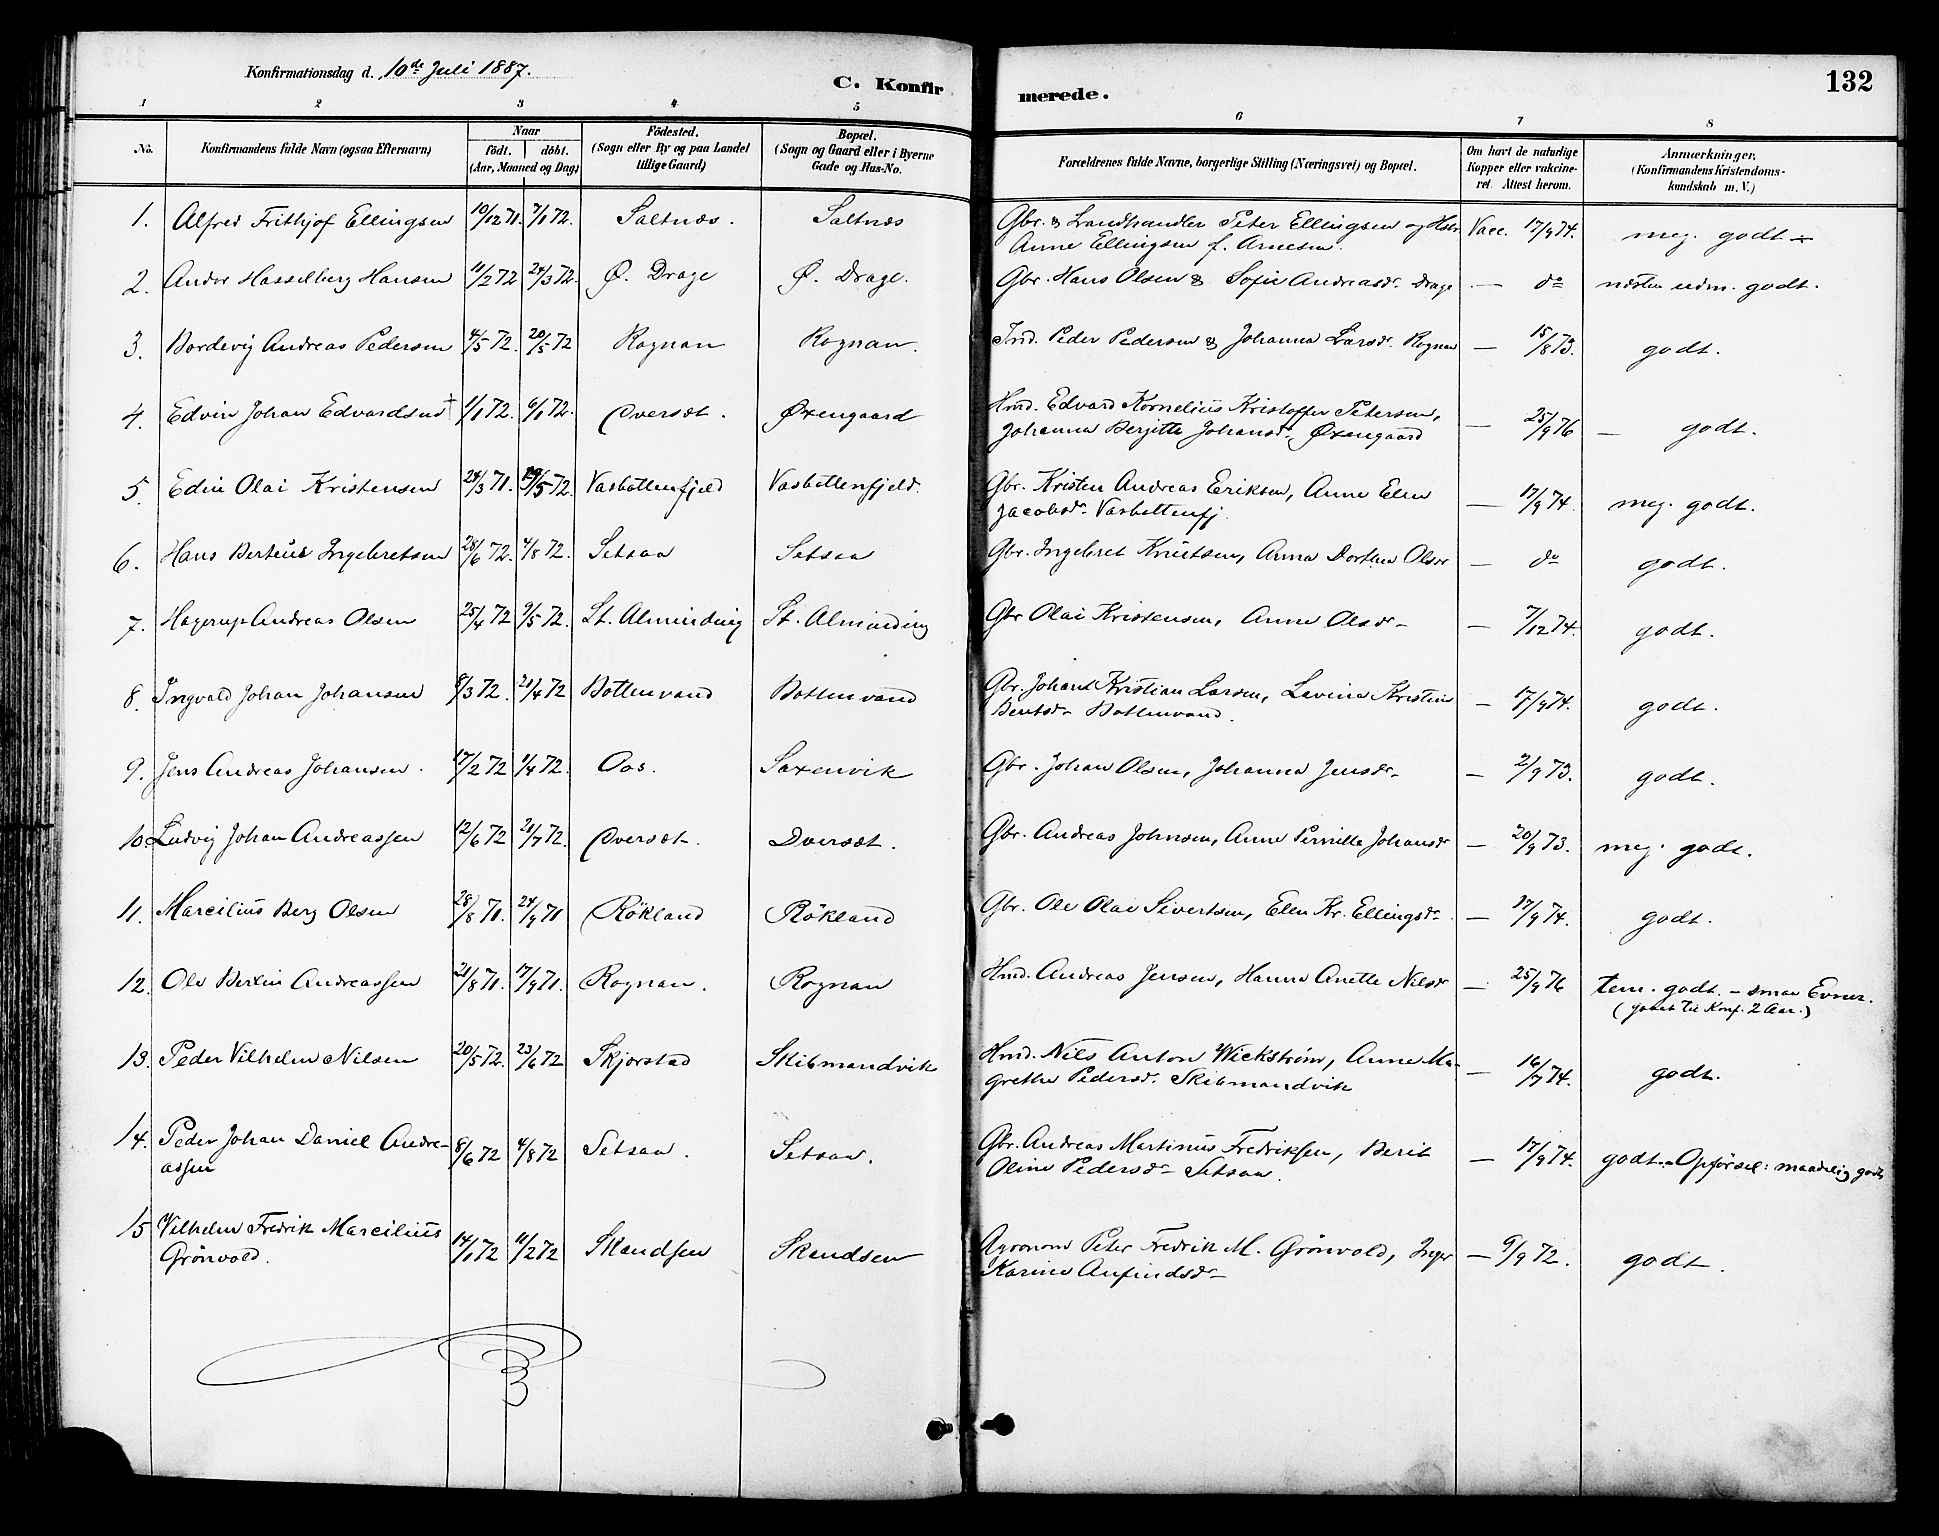 Konfirmationsdag d. 10de Juli 1887.
C. Konfirmerede.
132
1 2 3 4 5 6 7 8
No.
Konfirmandens fulde Navn (ogsaa Efternavn)
Naar
födt. döbt.
(Aar, Maaned og Dag)
Födested.
(Sogn eller By og paa Landet
tillige Gaard)
Bopæl.
(Sogn og Gaard eller i Byerne
Gade og Hus-No.
Forældrenes fulde Navne, borgerlige Stilling (Næringsvei) og Bopæl.
Om havt de naturlige
Kopper eller vakcine-
ret. Attest herom.
Anmærkninger,
(Konfirmandens Kristendoms-
kundskab m. V.)
1. Alfred Frithjof Ellingsen 10/12 71. 7/1 72. Saltnæs. Saltnæs Gbr. & Landhandler Peter Ellingsen og Hstr. Vacc. 17/9 74. meg. godt
Anne Ellingsen f. Arnesen.
2. Andor Hasselberg Hansen 11/2 72 24/3 72. Ø. Drage Ø. Drage. Gbr. Hans Olsen & Sofie Andreasdr. Drage — do næsten udm. godt.
3. Bordevig Andreas Pedersen 4/5 72. 20/5 72 Rognan Rognan. Ind. Peder Pedersen & Johanna Larsdr. Rognan — 15/8 73. godt.
4. Edvin Johan Edvardsen † 1/1 72. 6/1 72. Oversæt. Øxengaard Hmd. Edvard Kornelius Kristoffer Petersen, — 25/9 76 — godt.
Johanna Berjitte Johansdr. Øxengaard
5. Edin Olai Kristensen 24/3 71. 19/5 72. Vasbottenfjeld Vasbottenfjeld. Gbr. Kristen Andreas Eriksen, Anne Elen — 17/9 74. meg. godt.
Jacobsdr. Vasbottenfj.
6. Hans Berteus Ingebretsen 28/6 72. 4/8 72. Setsaa Setsaa Gbr. Ingebret Knutsen, Anna Dorthea Olsdr — do godt.
7. Hagerup Andreas Olsen 25/4 72 9/5 72. St. Alminding St. Alminding Gbr Olai Kristensen, Anne Olsdr — 7/12 74. godt.
8. Ingvald Johan Johansen 8/3 72. 21/4 72 Bottenvand Bottenvand Gbr. Johan Kristian Larsen, Lavina Kristine — 17/9 74. godt.
Bentsdr Bottenvand.
9. Jens Andreas Johansen. 17/2 72 1/4 72. Oos. Saxenvik Gbr. Johan Olsen, Johanna Jensdr — 2/9 73. godt.
10. Ludvig Johan Andreassen 12/6 72 21/7 72. Oversæt. Oversæt. Gbr. Andreas Johnsen, Anne Pernille Johansdr — 20/9 73. meg. godt.
11. Marcilius Berg Olsen 28/8 71. 24/9 71 Rökland Rökland Gbr. Ole Olai Sivertsen, Elen Kr. Ellingsdr — 17/9 74. godt.
12. Ole Bertin Andreassen 21/8 71. 17/9 71. Rognan. Rognan Hmd. Andreas Jensen, Hanna Anette Nilsdr — 25/9 76 tem. godt. - smaa Evner.
( til Konf. 2 Aar.)
13. Peder Vilhelm Nilsen 20/5 72. 23/6 72 Skjorstad Skibmandvik Hmd. Nils Anton Wickstrøm, Anne Ma- — 16/7 74. godt.
grethe Pedersdr. Skibmandvik
14. Peder Johan Daniel Andre- 8/6 72 4/8 72 Setsaa. Setsaa. Gbr. Andreas Martinus Fredriksen, Berit — 17/9 74. godt. - Opførsel: maadelig godt
assen Oline Pedersdr Setsaa.
15 Vilhelm Fredrik Marcilius 14/1 72 11/2 72 Skandsen Skandsen Agronom Peter Fredrik M. Grönvold, Inger — 9/9 72. godt.
Grönvold. Karine Anfindsdr